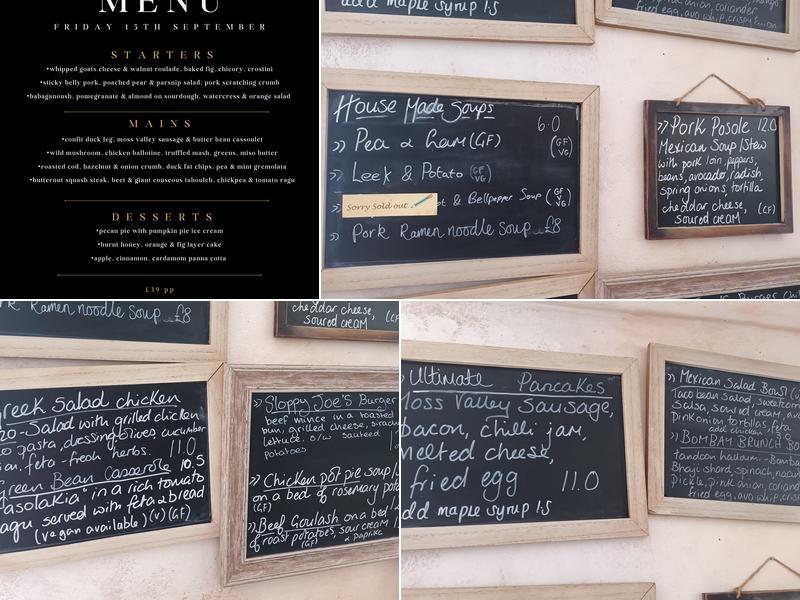 MENU
FRIDAY 15TH SEPTEMBER
STARTERS
•whipped goats cheese & walnut roulade, baked fig, chicory, crostini
•sticky belly pork, poached pear & parsnip salad, pork scratching crumb
•babaganoush, pomegranate & almond on sourdough, watercress & orange salad
MAINS
•confit duck leg, moss valley sausage & butter bean cassoulet
•wild mushroom, chicken ballotine, truffled mash, greens, miso butter
•roasted cod, hazelnut & onion crumb, duck fat chips, pea & mint gremolata
•butternut squash steak, beet & giant couscous tabouleh, chickpea & tomato ragu
DESSERTS
•pecan pie with pumpkin pie ice cream
•burnt honey, orange & fig layer cake
•apple, cinnamon, cardamom panna cotta
£39 pp
add maple syrup 1.5
onion, coriander
fried egg, avo whip, crispy onion
House Made Soups
6.0
» Pea & ham (GF)
(GF VG)
» Leek & Potato (GF VG)
Sorry Sold out
& Bellpepper Soup (GF VG)
» Pork Ramen noodle soup £8
» Pork Posole 12.0
Mexican Soup/Stew
with pork loin, peppers,
beans, avocado, radish,
spring onions, tortilla
cheddar cheese,
soured cream (GF)
Ramen noodle soup £8
cheddar cheese,
soured cream (GF)
reek Salad chicken
zo-Salad with grilled chicken
zo pasta, dressing, olives, cucumber
feta - fresh herbs. 11.0
green Bean Casserole 10.5
"asolakia" in a rich tomato
agu served with feta & bread
(vegan available) (v) (GF)
» Sloppy Joe's Burger
beef mince in a toasted
bun, grilled cheese, srirach
lettuce. s/w sauteed
potatoes
» Chicken pot pie soup
on a bed of rosemary pota
(GF)
» Beef Goulash on a bed
of roast potatoes, sour cream
(GF) & paprika
Ultimate Pancakes
Moss Valley Sausage,
bacon, chilli jam,
melted cheese,
fried egg 11.0
add maple syrup 1.5
» Mexican Salad Bowl
Taco bean salad, sweetcorn
Salsa, soured cream, avo
pink onion, tortillas, feta
add chicken
» BOMBAY BRUNCH BO
tandoori halloumi - Bombay
Bhaji shard, spinach,
pickle, pink onion, coriander
fried egg, avo whip, crisp